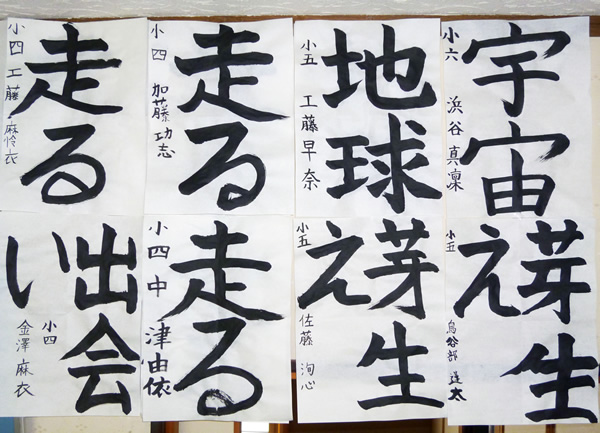 宇宙
小六 浜谷真凜
地球
小五 工藤早奈
走る
小四 加藤功志
走る
小四 工藤麻怜衣
芽生え
小五 鳥谷部 太
芽生え
小五 佐藤洵心
走る
小四 中津由依
出会い
小四 金澤麻衣